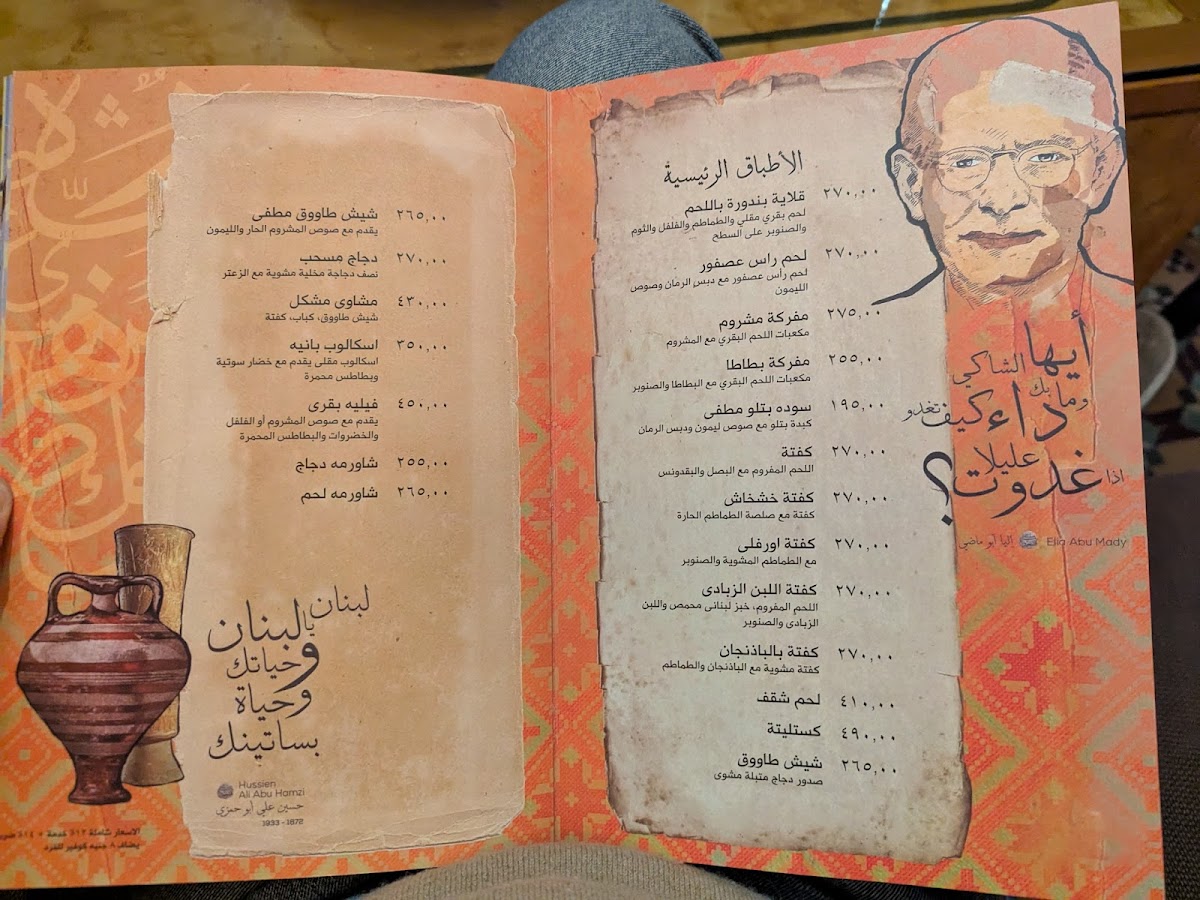 الأطباق الرئيسية
قلاية بندورة باللحم ٢٧٠,٠٠
لحم بقري مقلي والطماطم والفلفل والثوم
والصنوبر على السطح
لحم راس عصفور ٢٧٠,٠٠
لحم رأس عصفور مع دبس الرمان وصوص
الليمون
مفركة مشروم ٢٧٥,٠٠
مكعبات اللحم البقري مع المشروم
مفركة بطاطا ٢٥٥,٠٠
مكعبات اللحم البقري مع البطاطا والصنوبر
سوده بتلو مطفى ١٩٥,٠٠
كبدة بتلو مع صوص ليمون ودبس الرمان
كفتة ٢٧٠,٠٠
اللحم المفروم مع البصل والبقدونس
كفتة خشخاش ٢٧٠,٠٠
كفتة مع صلصة الطماطم الحارة
كفتة اورفلى ٢٧٠,٠٠
مع الطماطم المشوية والصنوبر
كفتة اللبن الزبادى ٢٧٠,٠٠
اللحم المفروم، خبز لبنانى محمص واللبن
الزبادى والصنوبر
كفتة بالباذنجان ٢٧٠,٠٠
كفتة مشوية مع الباذنجان والطماطم
لحم شقف ٤١٠,٠٠
كستليتة ٤٩٠,٠٠
شيش طاووق ٢٦٥,٠٠
صدور دجاج متبلة مشوى
أيها الشاكي
وما بك داء كيف تغدو
اذا غدوت عليلا؟
إليا أبو ماضي Elia Abu Mady
شيش طاووق مطفى ٢٦٥,٠٠
يقدم مع صوص المشروم الحار والليمون
دجاج مسحب ٢٧٠,٠٠
نصف دجاجة مخلية مشوية مع الزعتر
مشاوى مشكل ٤٣٠,٠٠
شيش طاووق، كباب، كفتة
اسكالوب بانيه ٣٥٠,٠٠
اسكالوب مقلى يقدم مع خضار سوتية
وبطاطس محمرة
فيليه بقرى ٤٥٠,٠٠
يقدم مع صوص المشروم أو الفلفل
والخضروات والبطاطس المحمرة
شاورمه دجاج ٢٥٥,٠٠
شاورمه لحم ٢٦٥,٠٠
لبنان
يا لبنان
وحياتك
وحياة
بساتينك
Hussien
Ali Abu Hamzi
حسين علي أبو حمزي
1933 - 1872
الاسعار شاملة ١٢% خدمة + ١٤%
يضاف ٨ جنيه كوفير للفرد